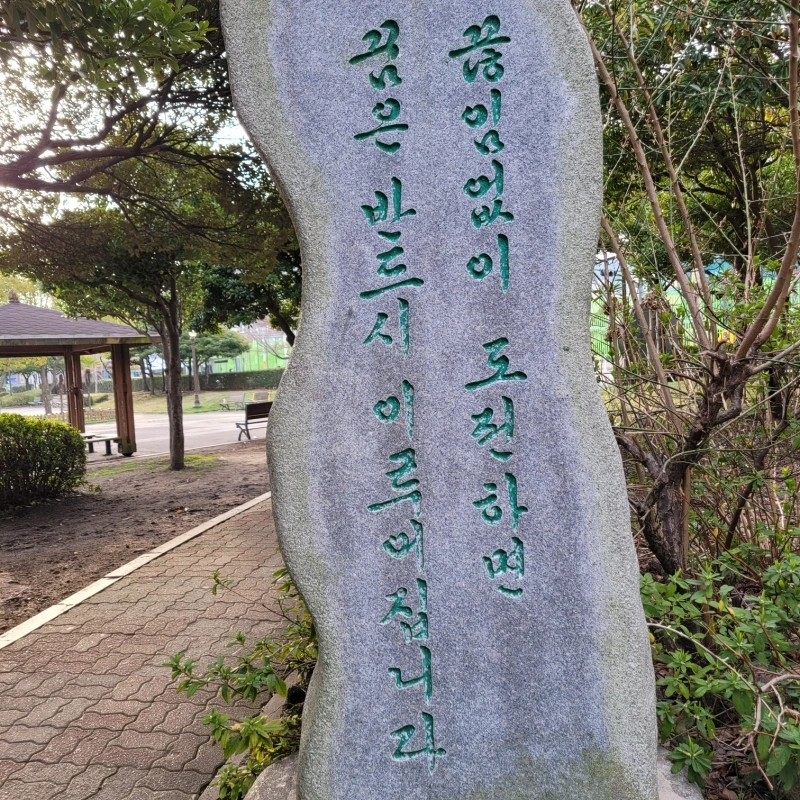 끊임없이 도전하면
꿈은 반드시 이루어집니다